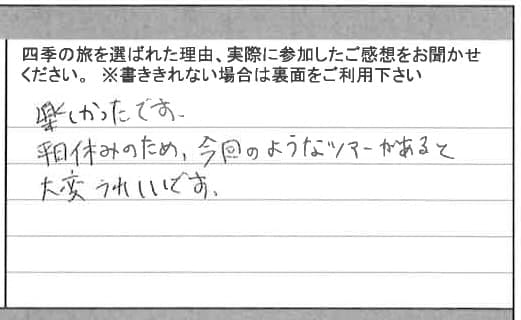 四季の旅を選ばれた理由、実際に参加したご感想をお聞かせ
ください。 ※書ききれない場合は裏面をご利用下さい
楽しかったです。
平日休みのため、今回のようなツアーがあると
大変うれしいです。